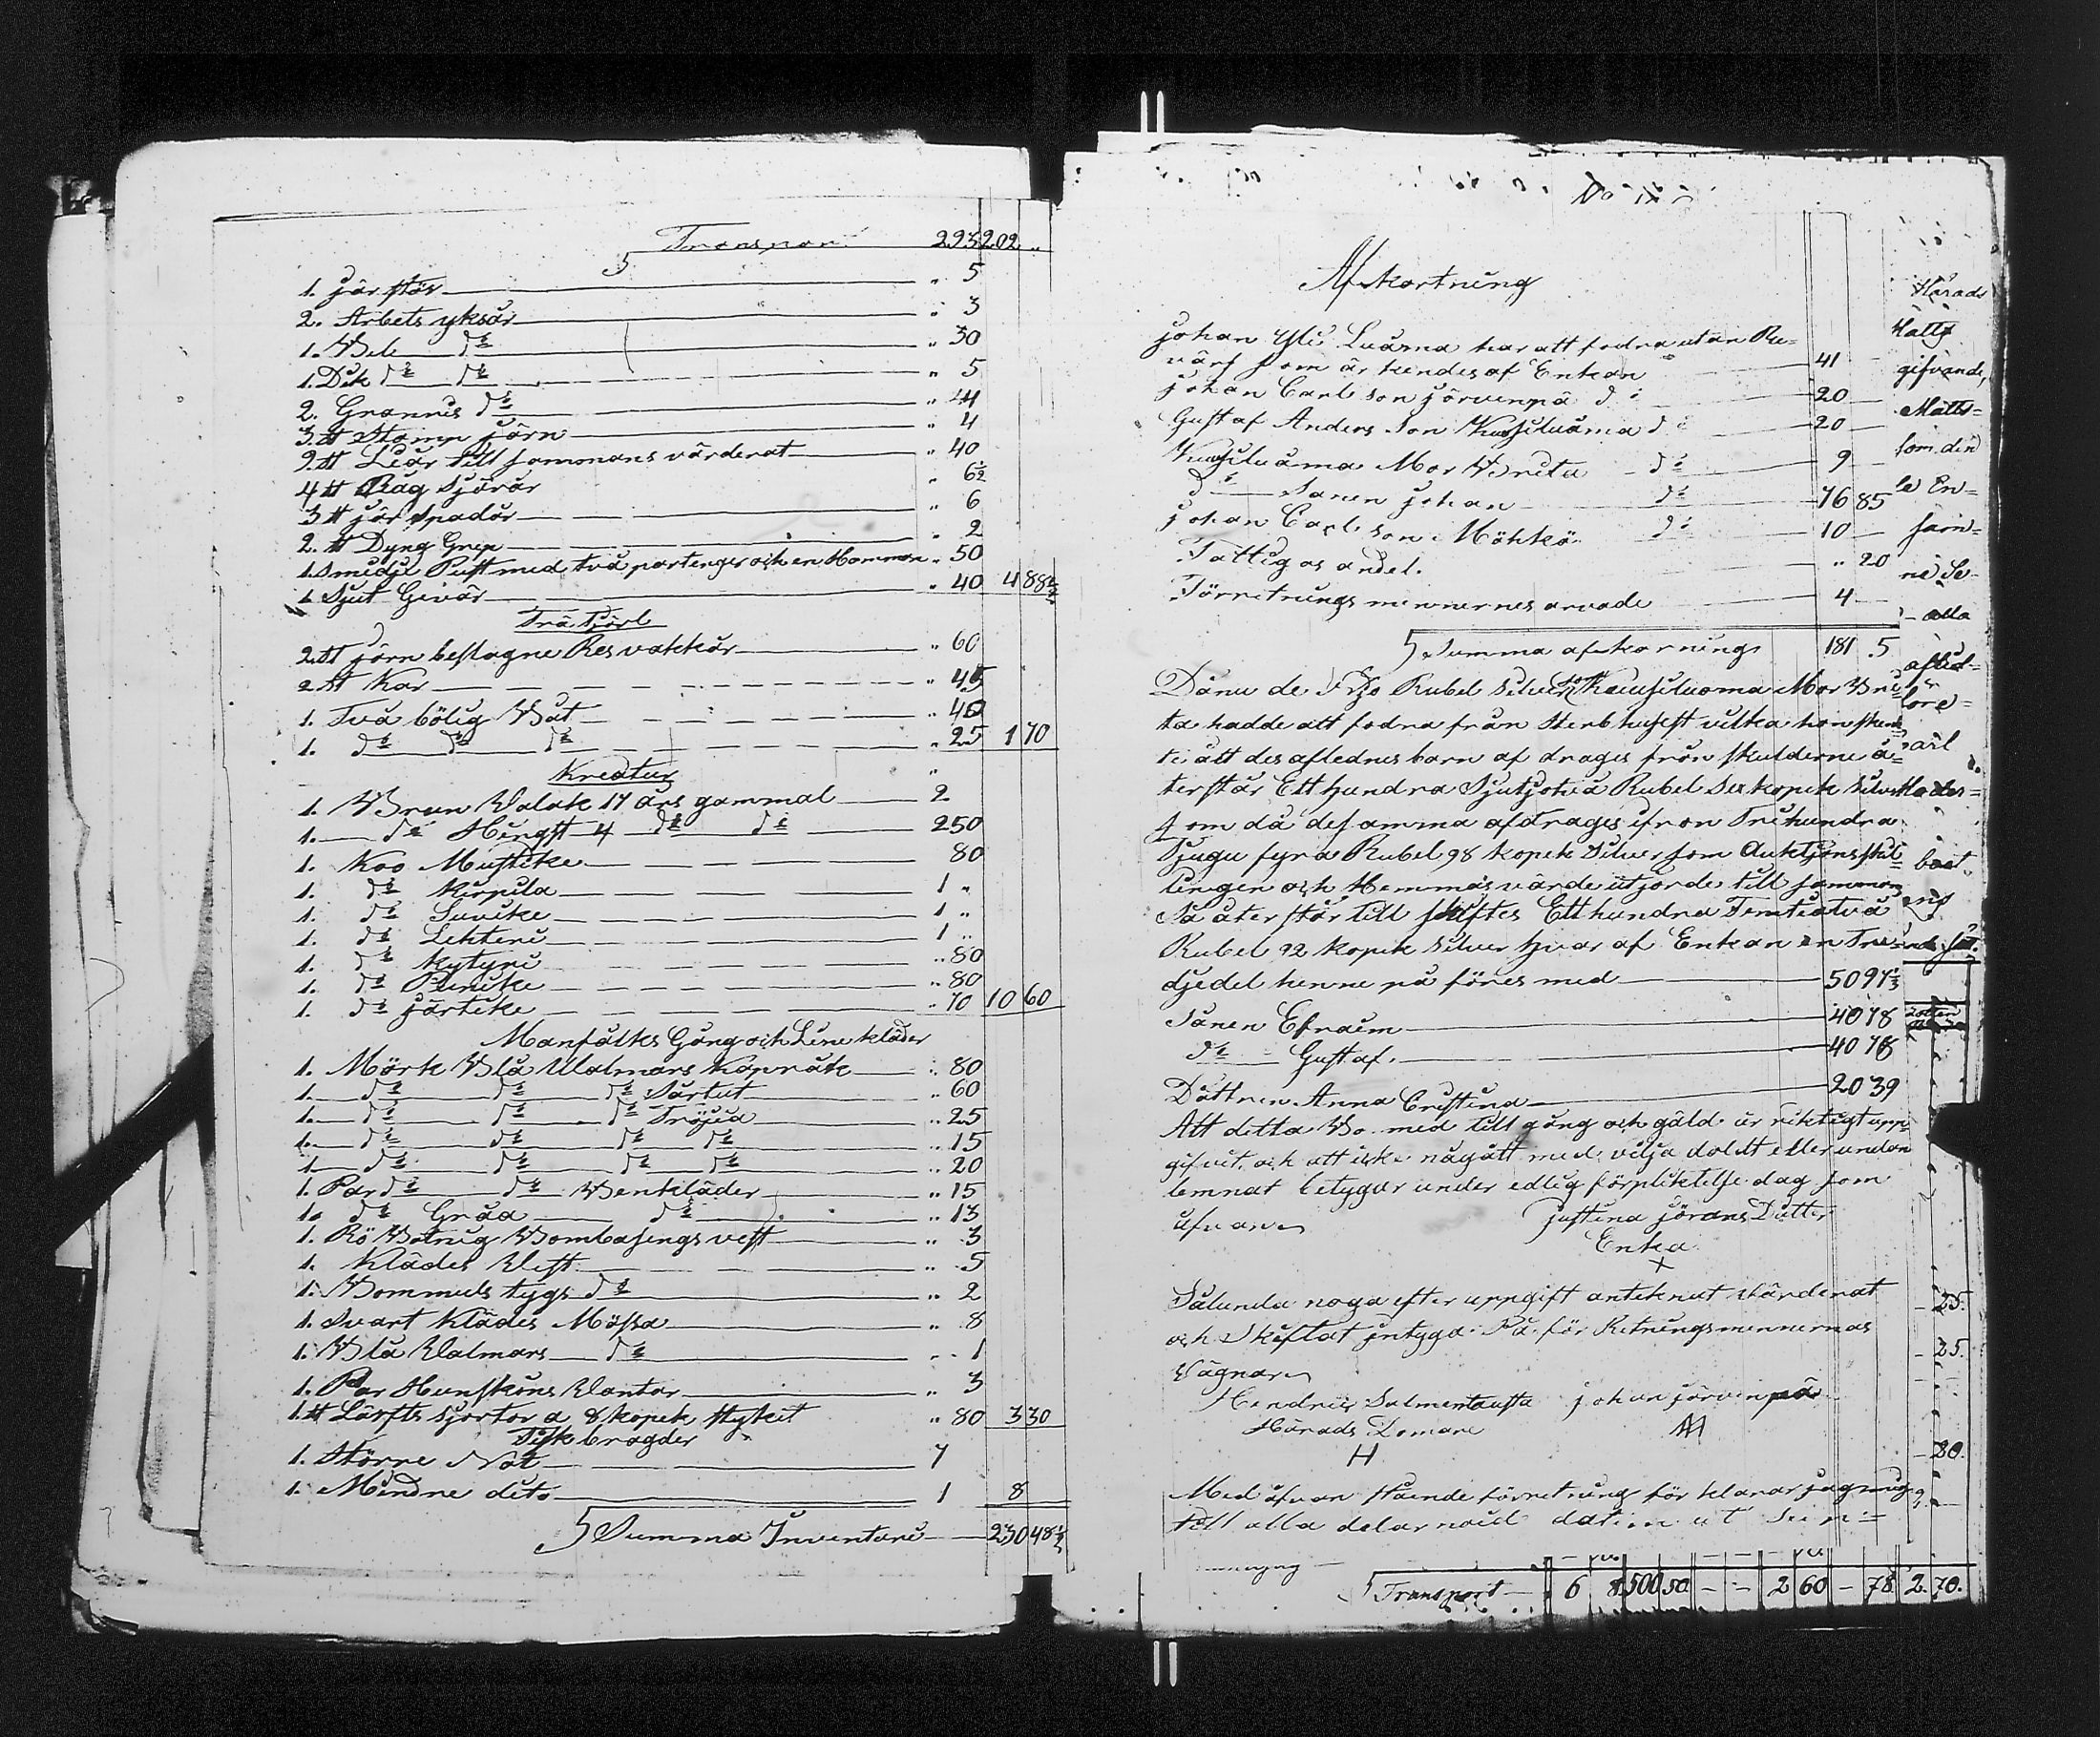 Transport 2 93 202 "
1. jär stör " 5
2. Arbets yksar " 3
1. Bil do " 30
1. Dik do do " 5
2. Grannis do " 4
3 st Stamp järn " 4
9 st Liar till sammans värderat " 40
4 st Råg Sjärar " 6½
3 st jär spador " 6
2. st Dyng Grep " 2
1. Smidje Pust med två partenger och en Hammar " 50
1 Sjut Gevär " 40 4 88½
Trä Kjärl
2 st järn beslagne Res vakkor " 60
2 st Kar " 45
1. Två bölig Båt " 40
1. do do do " 25 1 70
Kreatur
1. Brun Valak 14 års gammal 2
1. do Hingst 4 do do 2 50
1. Koo Mustike 80
1. do Kirpila 1 "
1. do Suvike 1 "
1. do Lehteri 1 "
1. do Kytyri " 80
1. do Punike " 80
1. do järtike " 70 10 60
Manfålks Gång och Line kläder
1. Mörk Blå Walmars Kapråk " 80
1. do do do Sartut " 60
1. do do do Tröjia " 25
1. do do do do " 15
1. do do do do " 20
1. Par do do Benkläder " 15
1. do Gråa do " 13
1. Rö Botnig Bombasings vest " 3
1. Klädes Vest " 5
1. Bommuls tygs do " 2
1. Svart Klädes Mössa " 8
1. Blå Valmars do " 1
1. Par Hunskins Vantar " 3
1. st Lärfts sjortor a 8 kopek stykit " 80 3 30
Fisk bragder
1. Större Nåt 7
1. Mindre dito 1 8
Summa Inventarie 230 48½
Afkortning
johan Yli Luoma har att fodra utan Re-
värs som är kendes af Enkan 41
johan Carlsson järvenpä do 20
Gustaf Andersson Kuusiluoma do 20
Kuusiluoma Mor Brita do 9
do Sanen johan do 76 85
johan Carlsson Möhkö do 10
Fattigas andel. " 20
Förretnings mennernes arvade 4
Summa afkornings 181 5
Dånu de Rubel Silver Kuusiluoma Mor Bri-
ta hadde att fodra från Sterbhuset vilka hon sken-
te åt des aflednes barn af drages från skulderne å-
terstår Ett hundra Sjutjotvå Rubel Sex kopek silver
som då desamma afdrages ifron Trihundra
tjugu fyra Rubel 98 kopek Silver som Auktjonsskil-
lingen och Hemmas värde utjorde till samman
Så återstår till skiftes Etthundra Femtiotvå
Rubel 92 kopek silver hvar af Enkan en Tre-
djedel henne på föres med 50 97⅓
Sånen Efraim 40 78
do Gustaf. 40 78
Dottren Anna Cristina 20 39
Att detta Bo med till gång och gäld är riktigt upp-
gifvit, och att icke någått med vilja doldt eller undan
lemnat betygar under edlig förpliktelse dag som
åfvan
justina jörans Dotter
Enka
X
Sålunda noga efter uppgift anteknat värderat
och Skiftat intyga: På för Retnings mennernas
Vägnar
Hendric Salmentausta johan järvenpää
Härads Domare
H
Med åfvan stående förretning för klarar jag mig
till alla delar nöid datim ut
Härads
Hatts
gifvande,
Matts-
som. den
le En-
alla
aflid-
lore-
boet
25.
25.
20.
Transport 6 8 500 50 - - 2 60 - 78 2. 70.